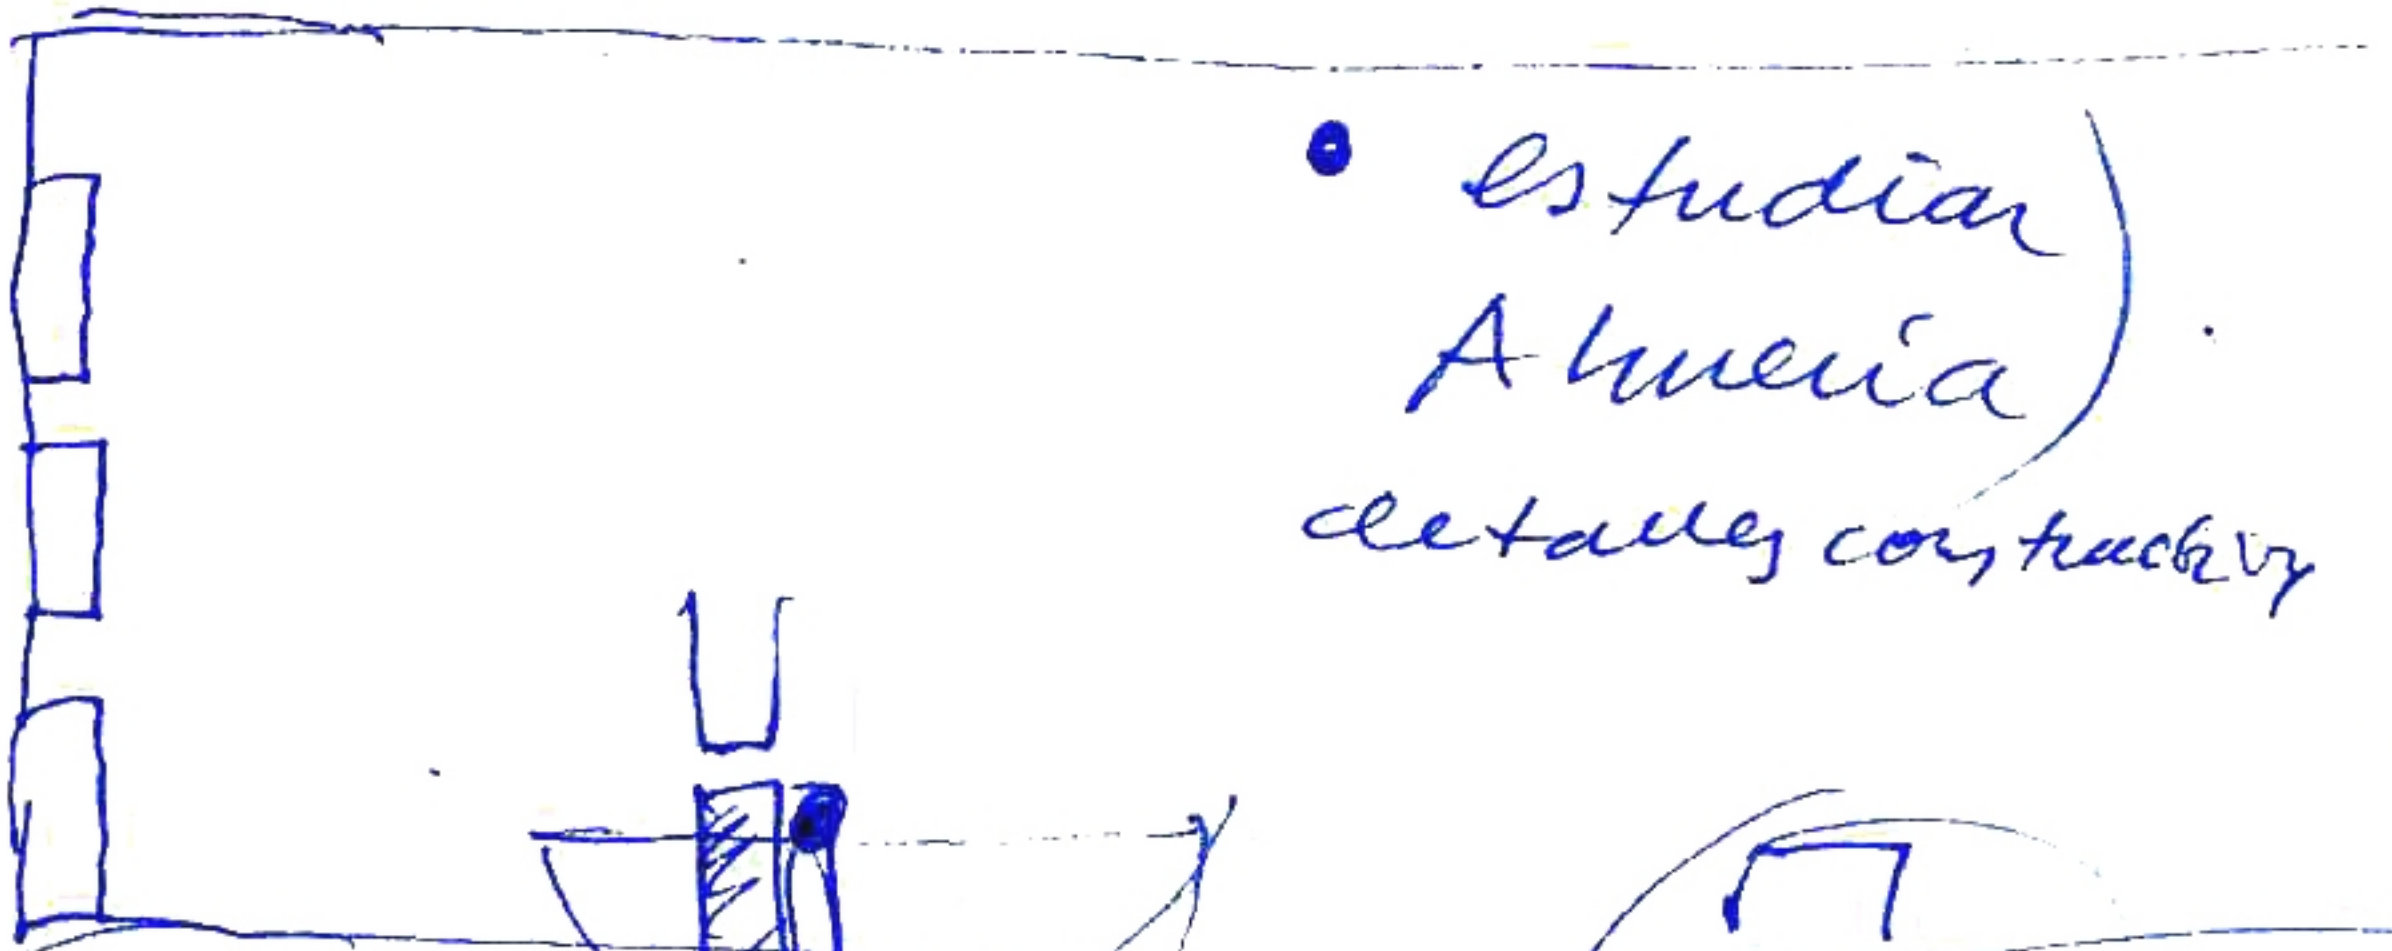 • estudiar
Almería
detalles constructivos